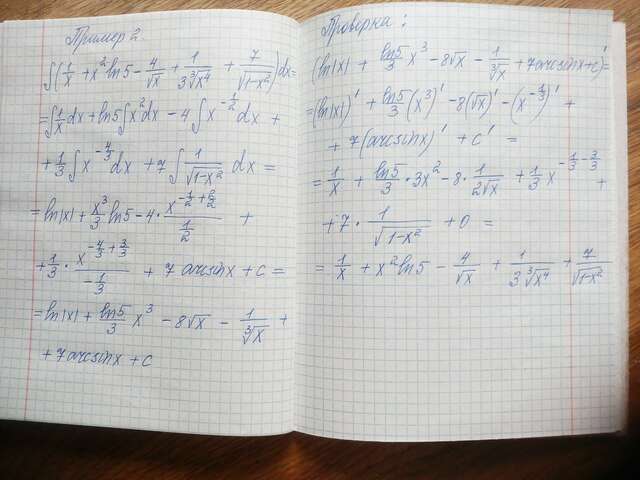 Пример 2.
∫(1/x + x² ln5 − 4/√x + 1/(3∛x⁴) + 7/√(1−x²))dx =
= ∫1/x dx + ln5∫x² dx − 4∫x^(−1/2) dx +
+ 1/3 ∫x^(−4/3) dx + 7∫1/√(1−x²) dx =
= ln|x| + x³/3 ln5 − 4 · x^(−1/2+2/2)/(1/2) +
+ 1/3 · x^(−4/3+3/3)/(−1/3) + 7 arcsinx + c =
= ln|x| + ln5/3 x³ − 8√x − 1/∛x +
+ 7arcsinx + c
Проверка:
(ln|x| + ln5/3 x³ − 8√x − 1/∛x + 7arcsinx + c)' =
= (ln|x|)' + ln5/3 (x³)' − 8(√x)' − (x^(−1/3))' +
+ 7(arcsinx)' + c' =
= 1/x + ln5/3 · 3x² − 8 · 1/(2√x) + 1/3 x^(−1/3−3/3) +
+ 7 · 1/√(1−x²) + 0 =
= 1/x + x² ln5 − 4/√x + 1/(3∛x⁴) + 7/√(1−x²)